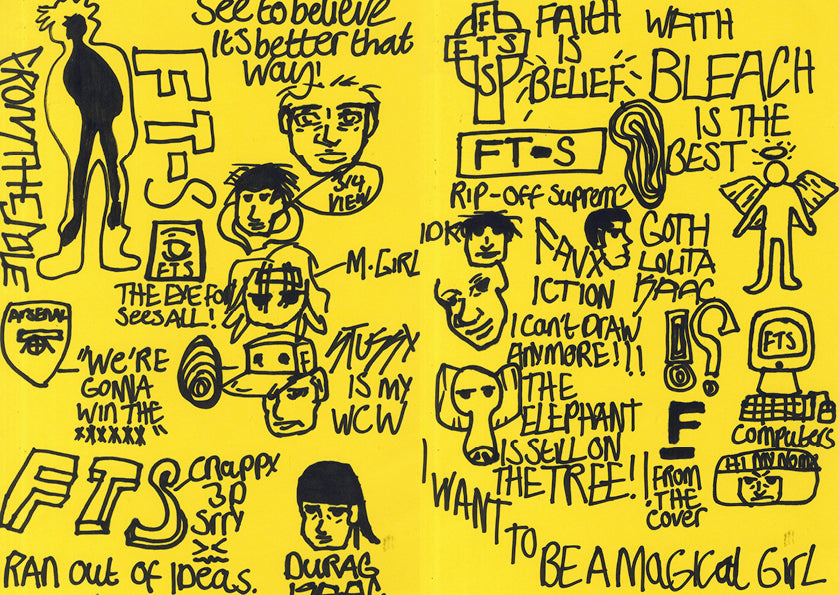 See to believe
It's better that
way!
FROM THE SOLE
FT-S
3/4
VIEW
FTS
THE EYE
SeesALL!
M.GIRL
ARSENAL
"WE'RE
GONNA
WIN THE
xxxxxx"
F
STUFFY
IS MY
WCW
FTS
CRAPPY
3D
Srry
>.<
RAN OUT OF IDEAS.
DURAG
F
ETS
S
FAITH
IS
BELIEF
WATH
BLEACH
IS THE
BEST
FT-S
RIP-OFF Supreme
FAUX
ICTION
GOTH
LOLITA
I Can't DRAW
ANYMORE!!!
!?
FTS
Computers
THE
ELEPHANT
IS STILL ON
THE TREE!
F
FROM
THE
Cover
I WANT TO BE A MAGICAL GIRL